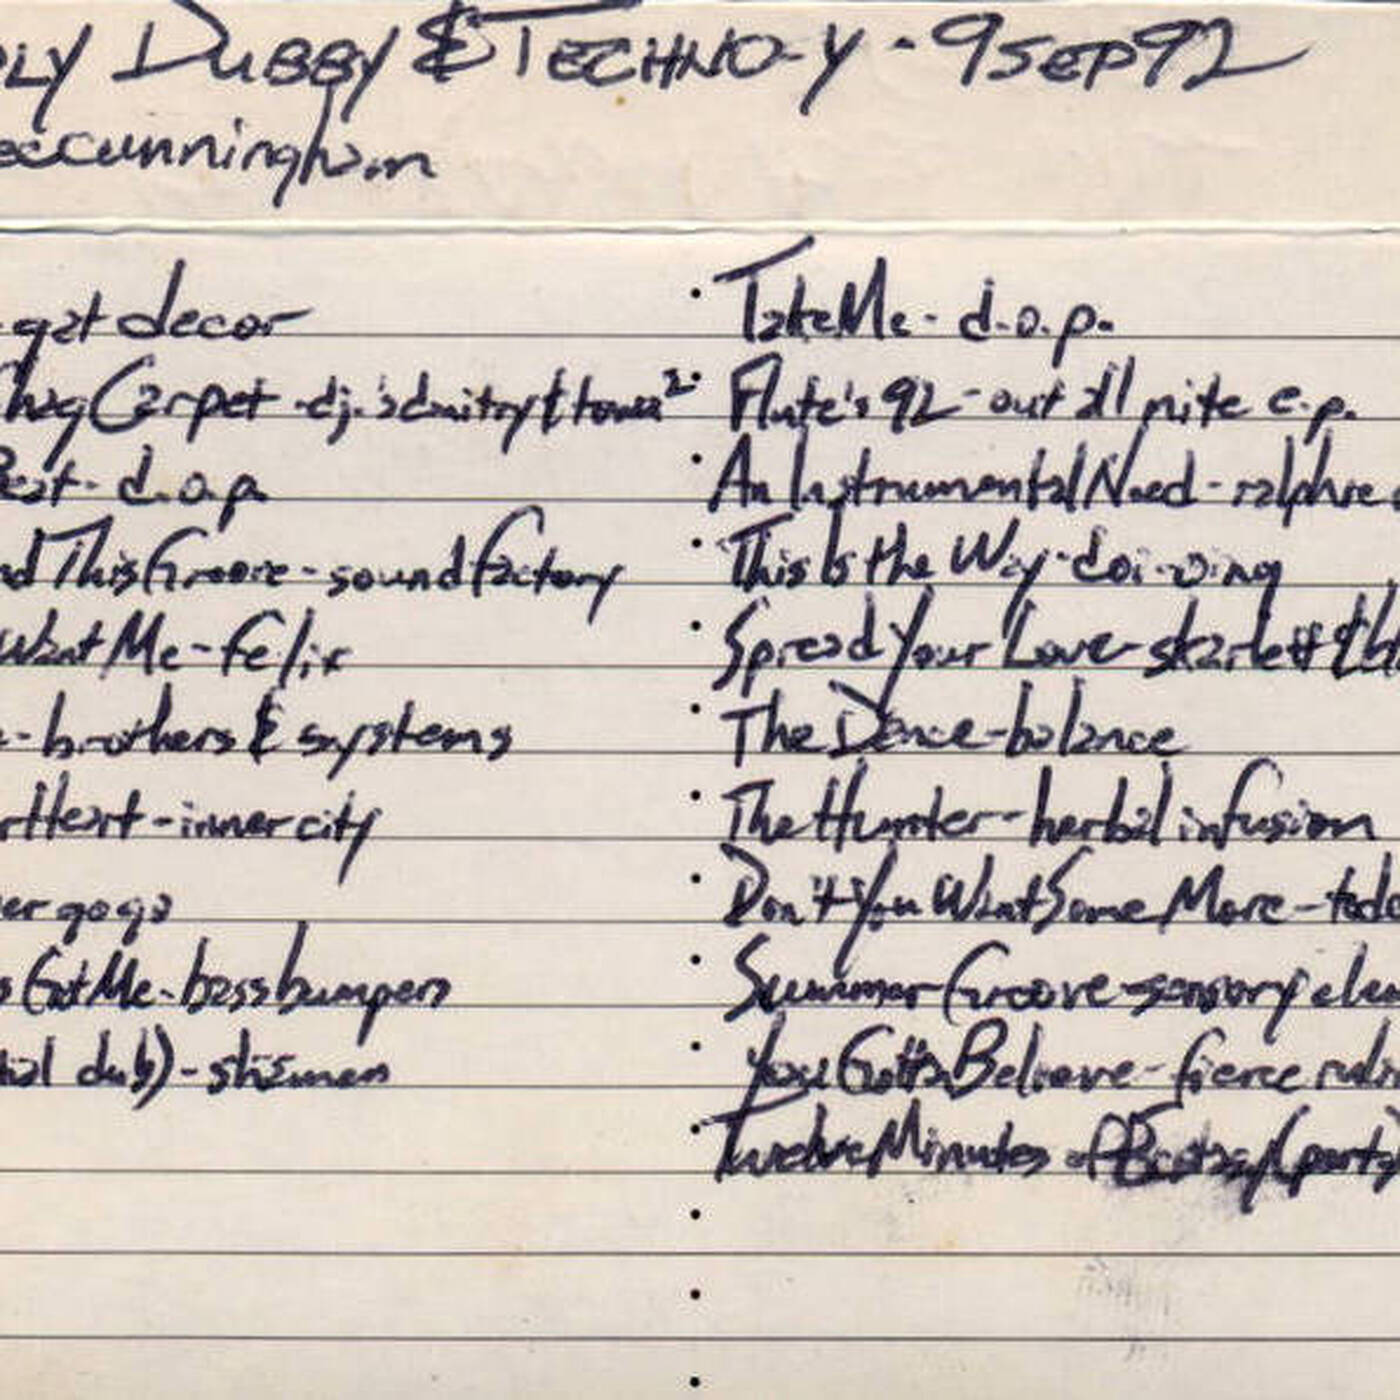 DUBBY & TECHNO-Y - 9SEP92
cunningham
gat decor
Carpet - dj.'s dmitry &
Beat - d.o.p.
This Groove - sound factory
Want Me - felix
- brothers & systems
Heart - inner city
er go go
Got Me - bass bumpers
dub) - shamen
Take Me - d.o.p.
Flute's 92 - out all nite e.p.
An Instrumental Need - ralphie
This Is the Way - doi-oing
Spread Your Love - skarlett &
The Dance - balance
The Hunter - herbal infusion
Don't You Want Some More -
Summer Groove - sensory
You Gotta Believe - fierce
Twelve Minutes of (part